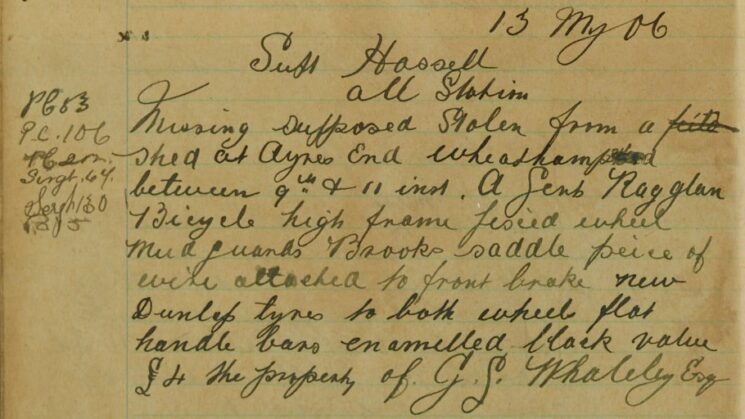 13 My 06
Supt Hassell
all Station
Missing supposed Stolen from a
shed at Ayres End wheathampstead
between 9th & 11 inst. A Gents Ragglan
Bicycle high frame fixed wheel
mudguards Brooks saddle peice of
wire attached to front brake new
Dunlop tyres to both wheels flat
handle bars enamelled black value
£4 the property of G. S. Whaleley Esq
PC 83
P.C. 106
Sergt. 64.